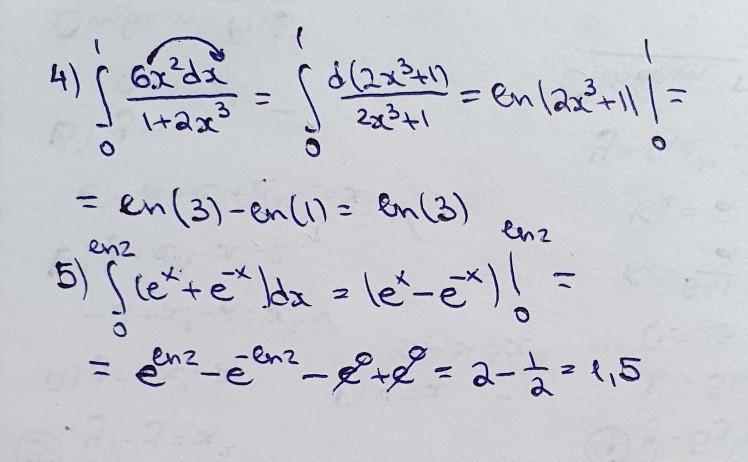 4) ∫₀¹ 6x²dx / 1+2x³ = ∫₀¹ d(2x³+1) / 2x³+1 = ln|2x³+1| |₀¹ =
= ln(3) - ln(1) = ln(3)
5) ∫₀^ln2 (eˣ + e⁻ˣ)dx = (eˣ - e⁻ˣ) |₀^ln2 =
= e^ln2 - e^-ln2 - e⁰ + e⁰ = 2 - 1/2 = 1,5